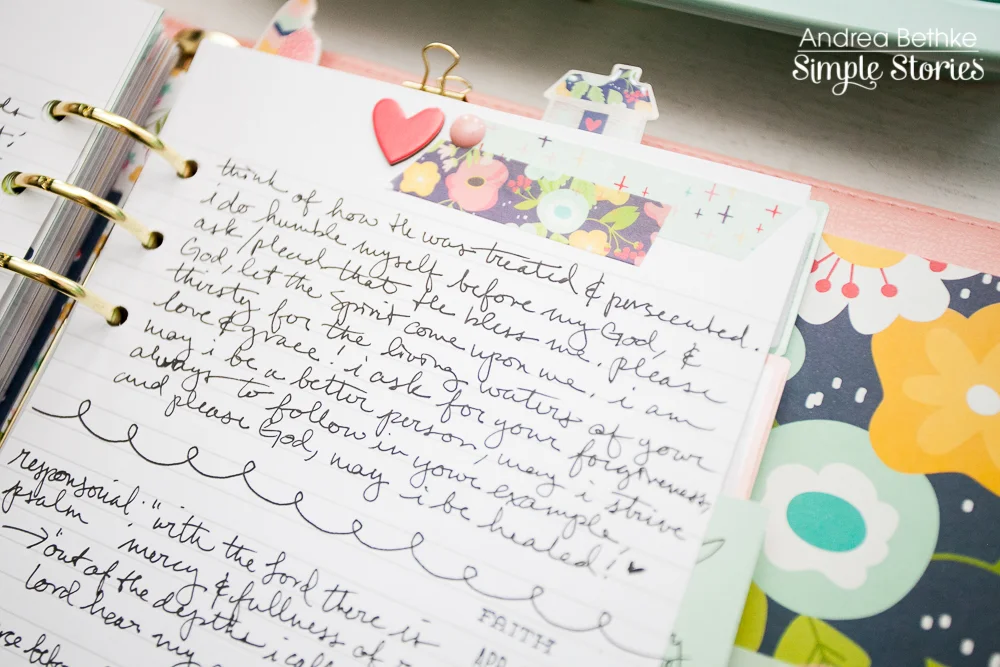 Andrea Bethke
Simple Stories
think of how He was treated & persecuted.
i do humble myself before my God, &
ask/plead that He bless me. please
God, let the Spirit come upon me. i am
thirsty for the living waters of your
love & grace! i ask for your forgiveness,
may i be a better person, may i strive
always to follow in your example,
and please God, may i be healed! ♥
responsorial: "with the Lord there is
psalm mercy & fullness of
→ "out of the depths i call
Lord hear my
FAITH